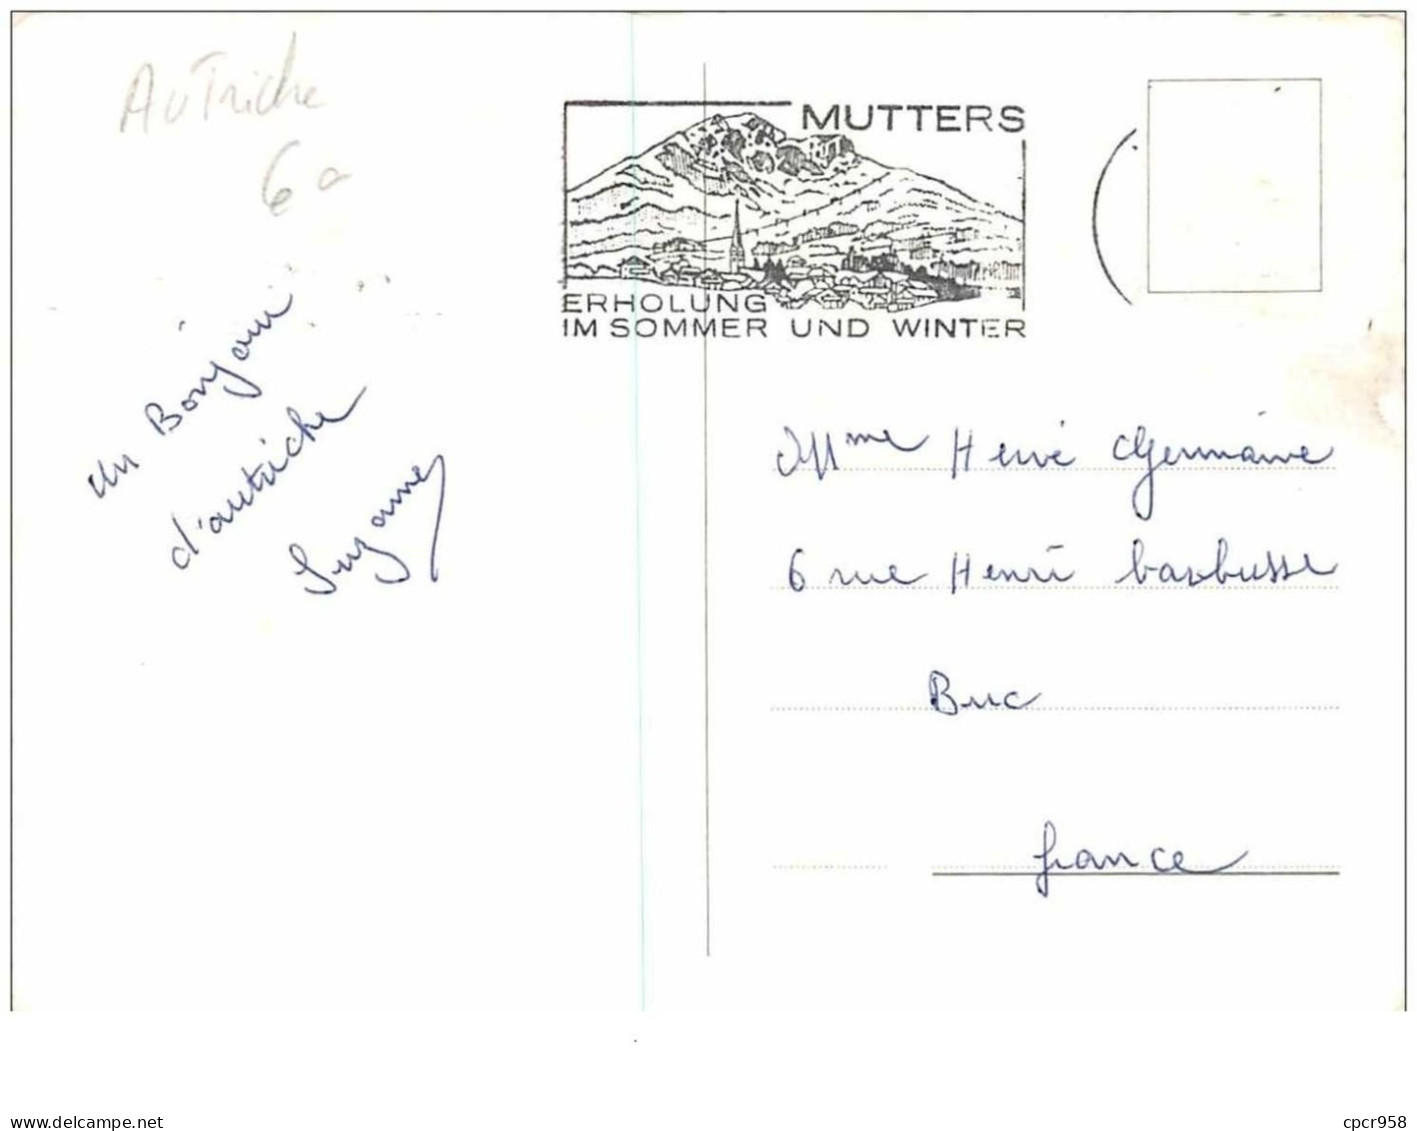 AuTriche
6
MUTTERS
ERHOLUNG
IM SOMMER UND WINTER
un Bonjour
d'autriche
Suzanne
Mme Hervé Germaine
6 rue Henri barbusse
Buc
france
delcampe.net
cpcr958